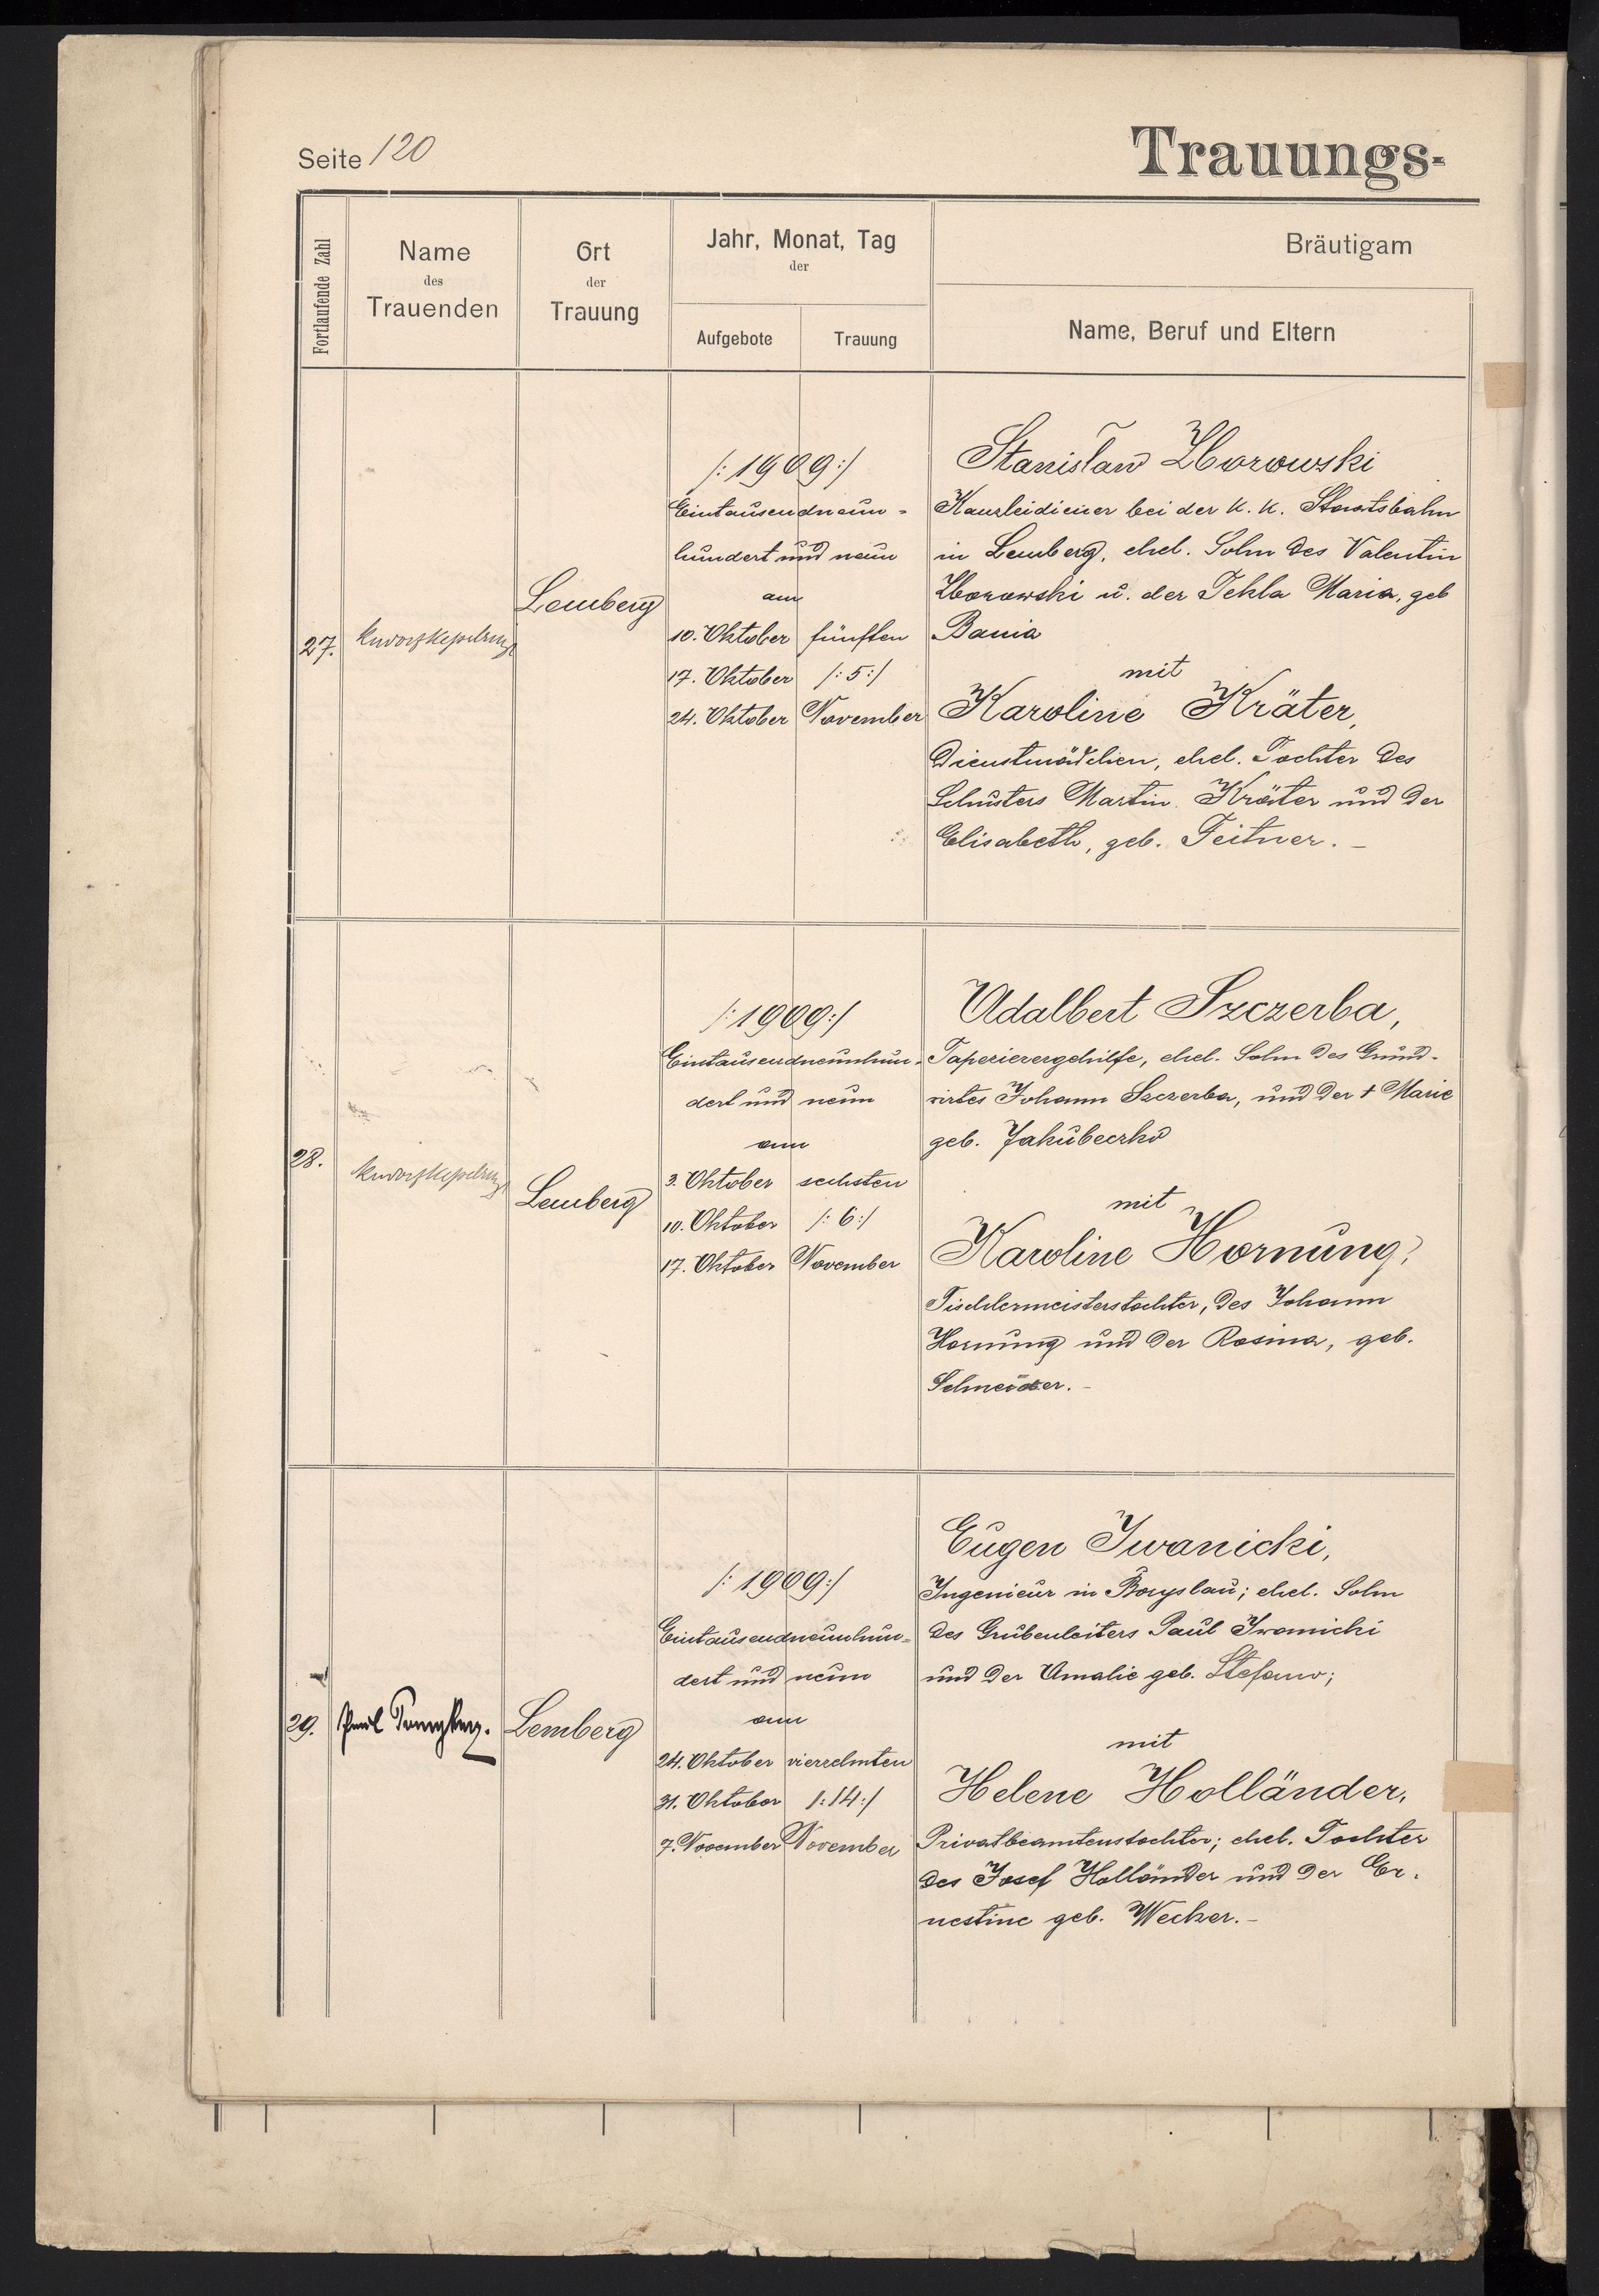 Seite 120
Trauungs-
Fortlaufende Zahl
Name
des
Trauenden
Ort
der
Trauung
Jahr, Monat, Tag
der
Aufgebote
Trauung
Bräutigam
Name, Beruf und Eltern
27.
Lemberg
/: 1909 :/
Eintausendneun-
hundert und neun
am
10. Oktober fünften
17. Oktober /: 5 :/
24. Oktober November
Stanisław Zborowski
Kanzleidiener bei der k. k. Staatsbahn
in Lemberg, ehel. Sohn des Valentin
Zborowski u. der Tekla Maria, geb
Bania
mit
Karoline Kräter,
Dienstmädchen, ehel. Tochter des
Schusters Martin Kräter und der
Elisabeth, geb. Feitner. -
28.
Lemberg
/: 1909 :/
Eintausendneunhun-
dert und neun
am
3. Oktober sechsten
10. Oktober /: 6 :/
17. Oktober November
Adalbert Szczerba,
Taperierergehilfe, ehel. Sohn des Grund-
wirtes Johann Szczerba, und der † Marie
geb. Jakubeczko
mit
Karoline Hornung,
Tischlermeisterstochter, des Johann
Hornung und der Rosina, geb.
Schneider. -
29.
Paul
Lemberg
/: 1909 :/
Eintausendneunhun-
dert und neun
am
24. Oktober vierzehnten
31. Oktober /: 14 :/
7. November November
Eugen Iwanicki,
Ingenieur in Boryslau; ehel. Sohn
des Grubenleiters Paul Iwanicki
und der Amalie geb.
mit
Helene Holländer,
Privatbeamtenstochter; ehel. Tochter
des Josef Holländer und der Er-
nestine geb. Wecker. -